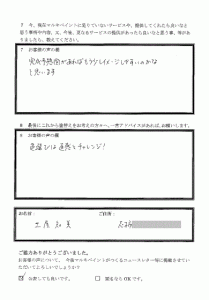 7 今、現在マルキペイントに足りていないサービスや、提供してくれたら良いなと
思う事柄や内容、又、今後、更なるサービスの提供があったら良いなと思う事、等があ
りましたら、教えてください。
7 お客様の声の欄
完成予想図があればもう少しイメージしやすいのかな
と思います
8 最後にこれから塗替えをお考えの方々へ、一言アドバイスがあれば、お願いします。
8 お客様の声の欄
色選びは直感とチャレンジ!
お名前: ご住所:
ご協力ありがとうございました。
お客様の声について、今後マルキペイントがつくるニュースレター等に掲載させてい
ただいてよろしいでしょうか?
お名前も良いです。 匿名なら OK です。